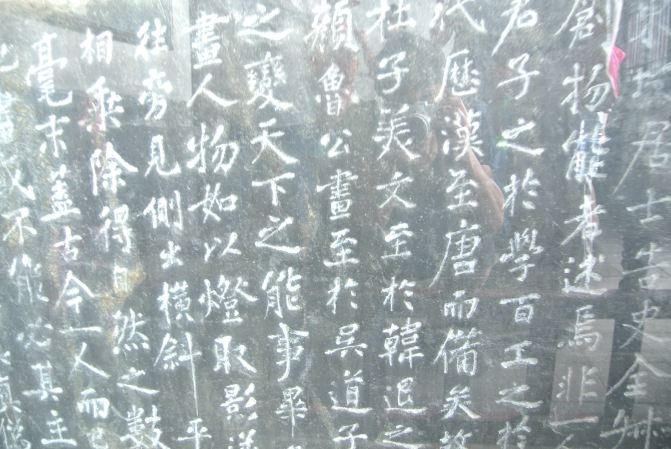 坡居士告史全叔
創物能者述焉非一人
君子之於學百工之於
代歷漢至唐而備矣故
杜子美文至於韓退之
顏魯公畫至於吳道子
之變天下之能事畢
畫人物如以燈取影逆
往旁見側出橫斜平
相乘除得自然之數
毫末蓋古今一人而已
他畫或不能必其主
真偽